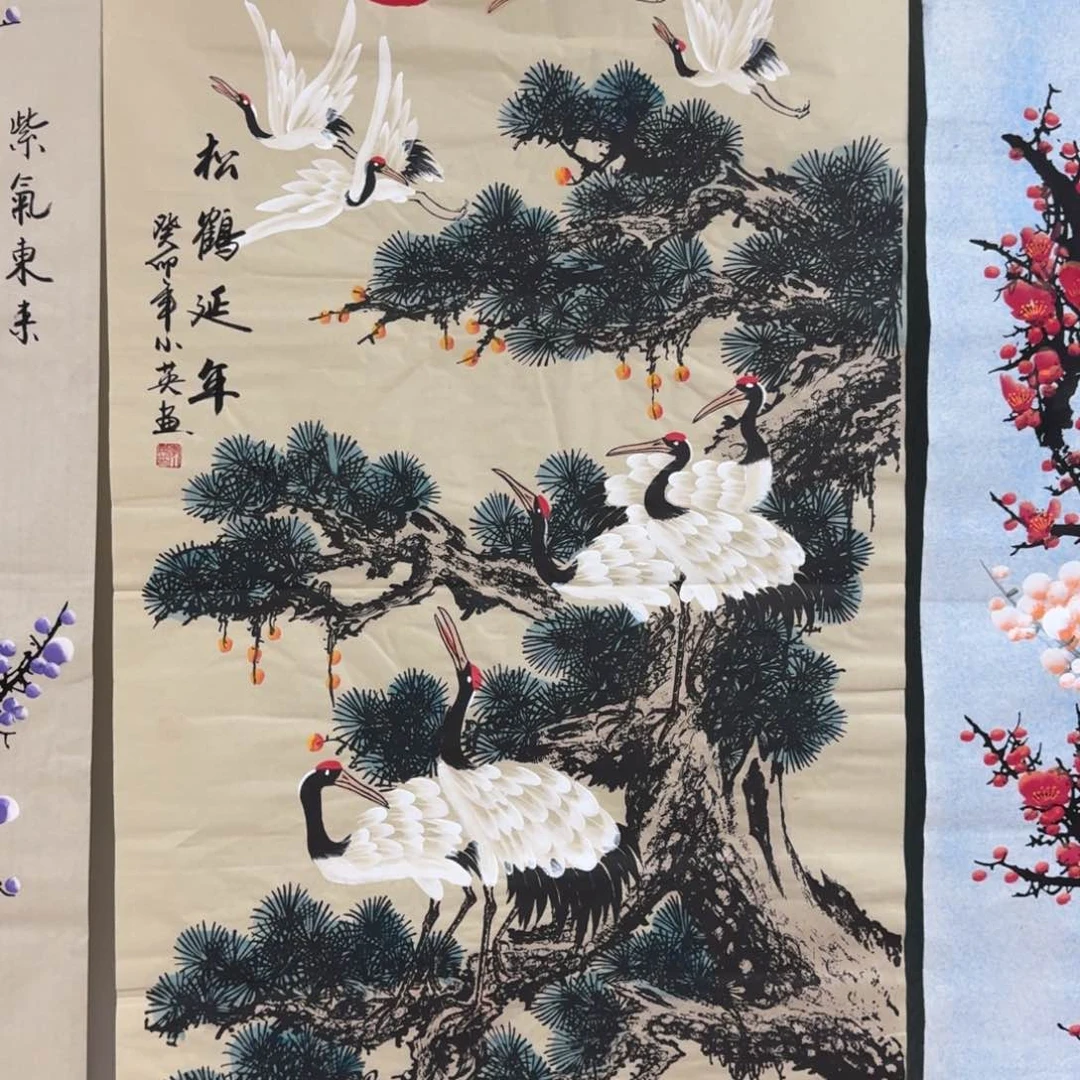 紫氣東来
松鶴延年
癸卯年小英画